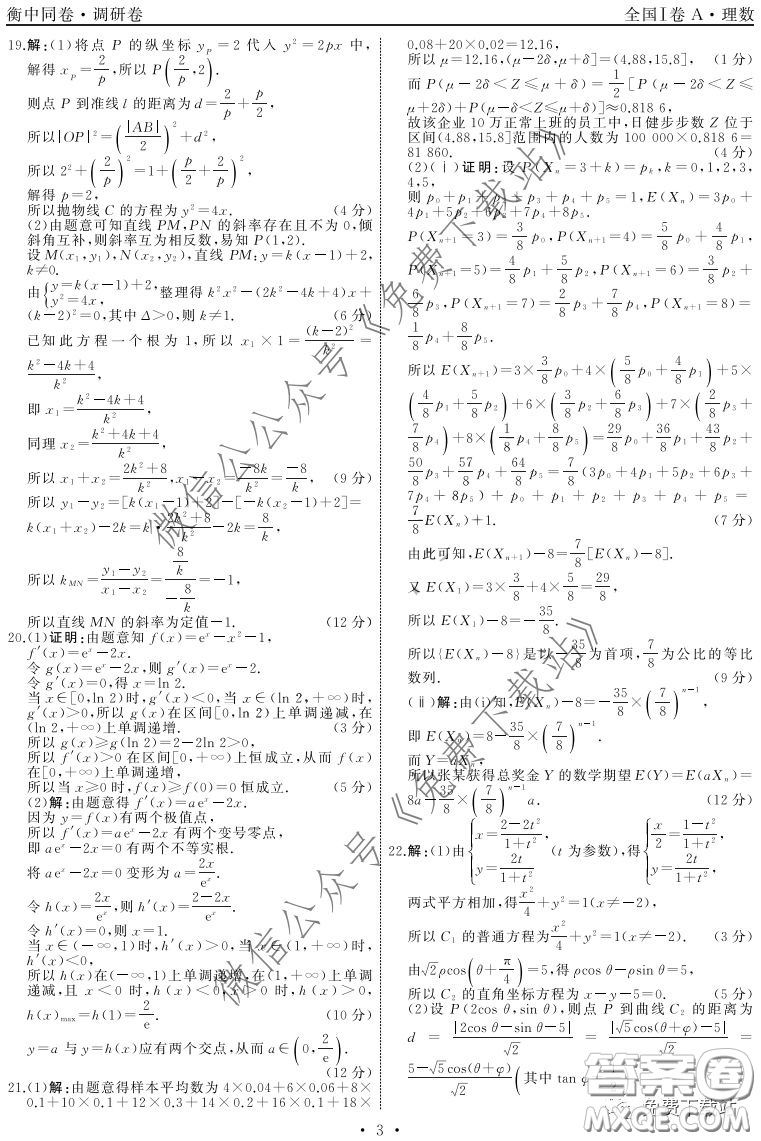 衡中同卷·调研卷
全国Ⅰ卷 A·理数
19.解:(1)将点 P 的纵坐标 y_P=2 代入 y²=2px 中,
解得 x_P=2/p,所以 P(2/p,2).
则点 P 到准线 l 的距离为 d=2/p+p/2,
所以|OP|²=(|AB|/2)²+d²,
所以 2²+(2/p)²=1+(p/2+2/p)²,
解得 p=2,
所以抛物线 C 的方程为 y²=4x. (4 分)
(2)由题意可知直线 PM,PN 的斜率存在且不为 0,倾
斜角互补,则斜率互为相反数,易知 P(1,2).
设 M(x₁,y₁),N(x₂,y₂),直线 PM:y=k(x-1)+2,
k≠0.
由{y=k(x-1)+2, y²=4x, 整理得 k²x²-(2k²-4k+4)x+
(k-2)²=0,其中 Δ>0,则 k≠1. (6 分)
已知此方程一个根为 1,所以 x₁×1=(k-2)²/k²=
(k²-4k+4)/k²,
即 x₁=(k²-4k+4)/k²,
同理 x₂=(k²+4k+4)/k²,
所以 x₁+x₂=(2k²+8)/k²,x₁-x₂=-8k/k²=-8/k, (9 分)
所以 y₁-y₂=[k(x₁-1)+2]-[-k(x₂-1)+2]=
k(x₁+x₂)-2k=k·(2k²+8)/k²-2k=8/k,
所以 k_MN=(y₁-y₂)/(x₁-x₂)=(8/k)/(-8/k)=-1,
所以直线 MN 的斜率为定值-1. (12 分)
20.(1)证明:由题意知 f(x)=eˣ-x²-1,
f′(x)=eˣ-2x.
令 g(x)=eˣ-2x,则 g′(x)=eˣ-2.
令 g′(x)=0,得 x=ln 2.
当 x∈[0,ln 2)时,g′(x)<0,当 x∈(ln 2,+∞)时,
g′(x)>0,所以 g(x)在区间[0,ln 2)上单调递减,在
(ln 2,+∞)上单调递增. (3 分)
所以 g(x)≥g(ln 2)=2-2ln 2>0,
所以 f′(x)>0 在区间[0,+∞)上恒成立,从而 f(x)
在[0,+∞)上单调递增,
所以当 x≥0时,f(x)≥f(0)=0 恒成立. (5 分)
(2)解:由题意得 f′(x)=aeˣ-2x.
因为 y=f(x)有两个极值点,
所以 f′(x)=aeˣ-2x 有两个变号零点,
即 aeˣ-2x=0 有两个不等实根.
将 aeˣ-2x=0 变形为 a=2x/eˣ.
令 h(x)=2x/eˣ,则 h′(x)=(2-2x)/eˣ.
令 h′(x)=0,则 x=1.
当 x∈(-∞,1)时,h′(x)>0,当 x∈(1,+∞)时,
h′(x)<0,
所以 h(x)在(-∞,1)上单调递增,在(1,+∞)上单调
递减,且 x<0 时,h(x)<0,x>0 时,h(x)>0,
h(x)max=h(1)=2/e. (10 分)
y=a 与 y=h(x)应有两个交点,从而 a∈(0,2/e).
(12 分)
21.(1)解:由题意得样本平均数为 4×0.04+6×0.06+8×
0.1+10×0.1+12×0.3+14×0.2+16×0.1+18×
0.08+20×0.02=12.16,
所以 μ=12.16,(μ-2δ,μ+δ]=(4.88,15.8], (1 分)
而 P(μ-2δ<Z≤μ+δ)=1/2[P(μ-2δ<Z≤
μ+2δ)+P(μ-δ<Z≤μ+δ)]≈0.818 6,
故该企业 10 万正常上班的员工中,日健步步数 Z 位于
区间(4.88,15.8]范围内的人数为 100 000×0.818 6=
81 860. (4 分)
(2)(ⅰ)证明:设 P(Xₙ=3+k)=p_k,k=0,1,2,3,
4,5,
则 p₀+p₁+p₂+p₃+p₄+p₅=1,E(Xₙ)=3p₀+
4p₁+5p₂+6p₃+7p₄+8p₅.
P(Xₙ₊₁=3)=3/8 p₀,P(Xₙ₊₁=4)=5/8 p₀+4/8 p₁,
P(Xₙ₊₁=5)=4/8 p₁+5/8 p₂,P(Xₙ₊₁=6)=3/8 p₂+
6/8 p₃,P(Xₙ₊₁=7)=2/8 p₃+7/8 p₄,P(Xₙ₊₁=8)=
1/8 p₄+8/8 p₅.
所以 E(Xₙ₊₁)=3×3/8 p₀+4×(5/8 p₀+4/8 p₁)+5×
(4/8 p₁+5/8 p₂)+6×(3/8 p₂+6/8 p₃)+7×(2/8 p₃+
7/8 p₄)+8×(1/8 p₄+8/8 p₅)=29/8 p₀+36/8 p₁+43/8 p₂+
50/8 p₃+57/8 p₄+64/8 p₅=7/8(3p₀+4p₁+5p₂+6p₃+
7p₄+8p₅)+p₀+p₁+p₂+p₃+p₄+p₅=
7/8 E(Xₙ)+1. (7 分)
由此可知,E(Xₙ₊₁)-8=7/8[E(Xₙ)-8].
又 E(X₁)=3×3/8+4×5/8=29/8,
所以 E(X₁)-8=-35/8.
所以{E(Xₙ)-8}是以-35/8为首项,7/8为公比的等比
数列. (9 分)
(ⅱ)解:由(ⅰ)知,E(Xₙ)-8=-35/8×(7/8)ⁿ⁻¹,
即 E(Xₙ)=8-35/8×(7/8)ⁿ⁻¹.
而 Y=aXₙ,
所以张某获得总奖金 Y 的数学期望 E(Y)=E(aXₙ)=
8a-35/8×(7/8)ⁿ⁻¹a. (12 分)
22.解:(1)由{x=(2-2t²)/(1+t²), y=2t/(1+t²) (t 为参数),得{x/2=(1-t²)/(1+t²), y=2t/(1+t²),
两式平方相加,得x²/4+y²=1(x≠-2),
所以 C₁ 的普通方程为x²/4+y²=1(x≠-2). (3 分)
由√2ρcos(θ+π/4)=5,得 ρcos θ-ρsin θ=5,
所以 C₂ 的直角坐标方程为 x-y-5=0. (5 分)
(2)设 P(2cos θ,sin θ),则点 P 到曲线 C₂ 的距离为
d=|2cos θ-sin θ-5|/√2=|√5cos(θ+φ)-5|/√2=
(5-√5cos(θ+φ))/√2(其中 tan φ
· 3 ·
微信公众号《免费下载站》
微信公众号《免费下载站》
答案圈
免费下载站